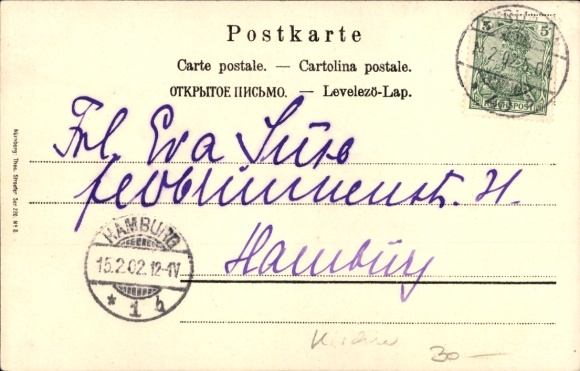 Postkarte
Carte postale. — Cartolina postale.
ОТКРЫТОЕ ПИСЬМО. — Levelező-Lap.
5 5
REICHSPOST
Frl. Eva Süss
H.
Hamburg
HAMBURG
15.2.02.12-1V
* 1 b
30—
Nürnberg Theo. Stroefer Ser. 210. Nº 8.